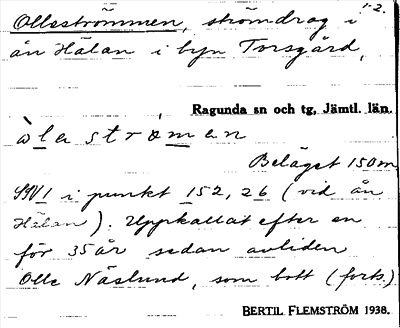 1-2.
Ollesströmmen, strömdrag i
ån Hälan i byn Torsgård,
Ragunda sn och tg, Jämtl. län.
Beläget 150 m
SSV 1 i punkt 152, 26 (vid ån
Hälan). Uppkallat efter en
för 35 år sedan avliden
Olle Näslund, som bott (forts.)
BERTIL FLEMSTRÖM 1938.